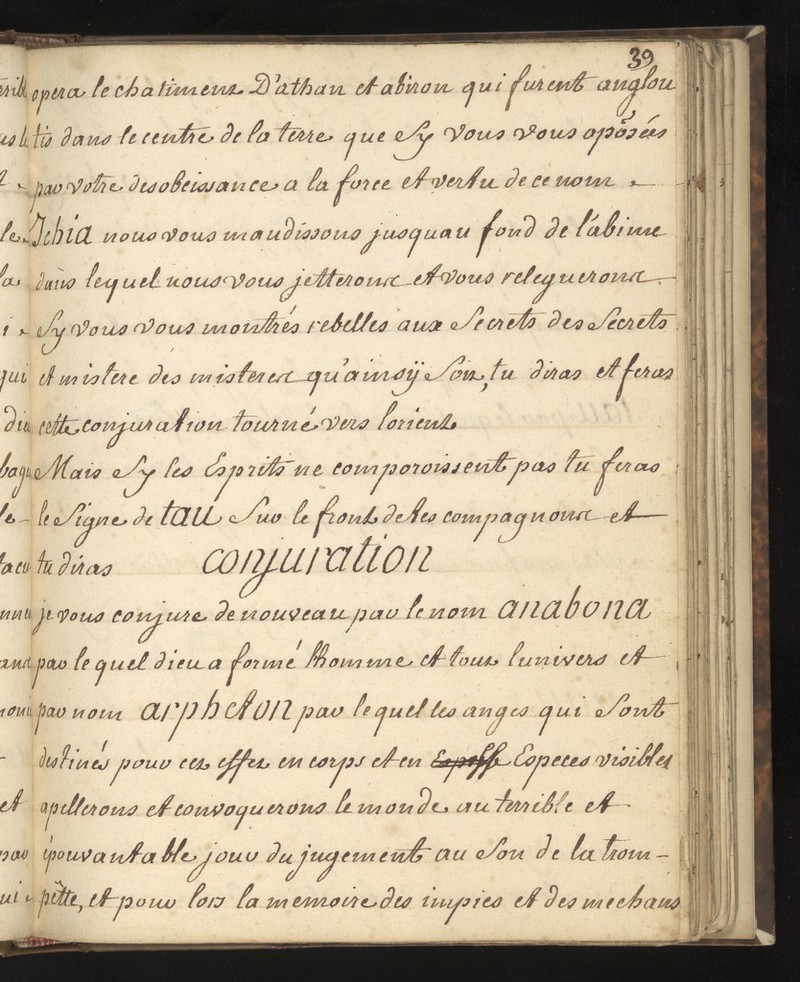 39
opera le chatiment D'athan et abiron qui furent anglou
tis dans le centre de la terre que Sy vous vous opósées
par votre desobeissance a la force et vertu de ce nom
Jehia nous vous maudissons jusquau fond de l'abime
dans lequel nous vous jetterons et vous releguerons
Sy vous vous montrés rebelles aux Secrets des Secrets
et mistere des misteres qu'ainsÿ Soit, tu diras et feras
cette conjuration tourné vers lorient
Mais Sy les Esprits ne comparoissent pas tu feras
le Signe de tau Sur le front de tes compagnons et
tu diras conjuration
je vous conjure de nouveau par le nom anabona
par le quel dieu a formé lhomme et tout lunivers et
par nom arpheton par lequel les anges qui Sont
destinés pour cet effet en corps et en Especes visibles
apellerons et convoquerons le monde au terrible et
épouvantable jour du jugement au Son de la trom-
pêtte, et pour lors la memoire des impies et des mechans